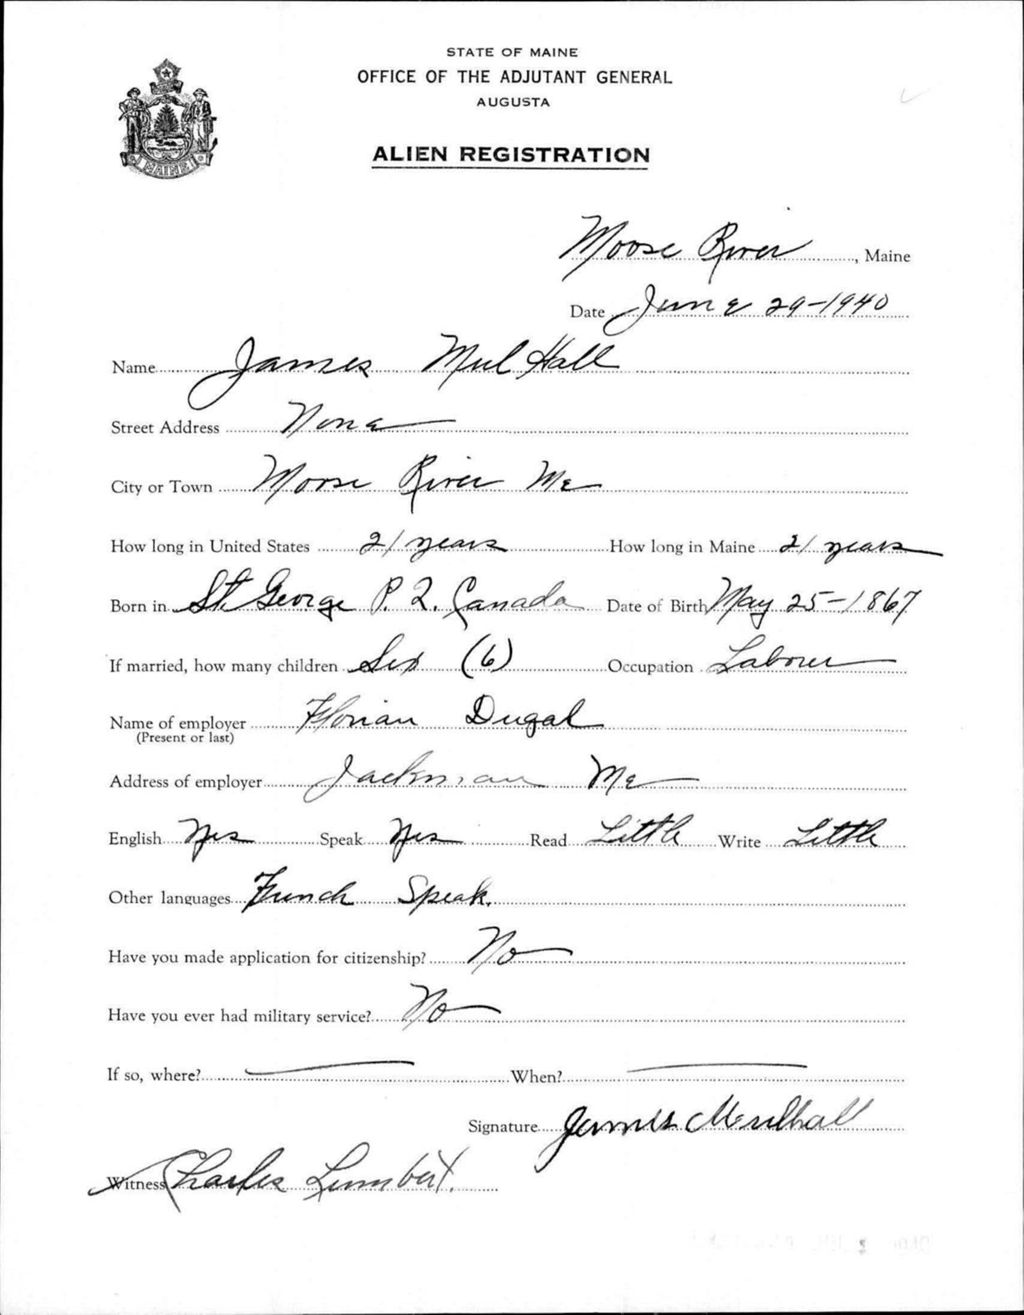 STATE OF MAINE
OFFICE OF THE ADJUTANT GENERAL
AUGUSTA
ALIEN REGISTRATION
MAINE
Moose River, Maine
Date June 29-1940
Name James Mul Hall
Street Address None
City or Town Moose River Me
How long in United States 21 years How long in Maine 21 years
Born in St. George P. Q. Canada Date of Birth May 25-1867
If married, how many children Six (6) Occupation Laborer
Name of employer Florian Dugal
(Present or last)
Address of employer Jackman Me
English Yes Speak Yes Read Little Write Little
Other languages French Speak.
Have you made application for citizenship? No
Have you ever had military service? No
If so, where? When?
Signature James Mulhall
Witness Charles Lumbert.